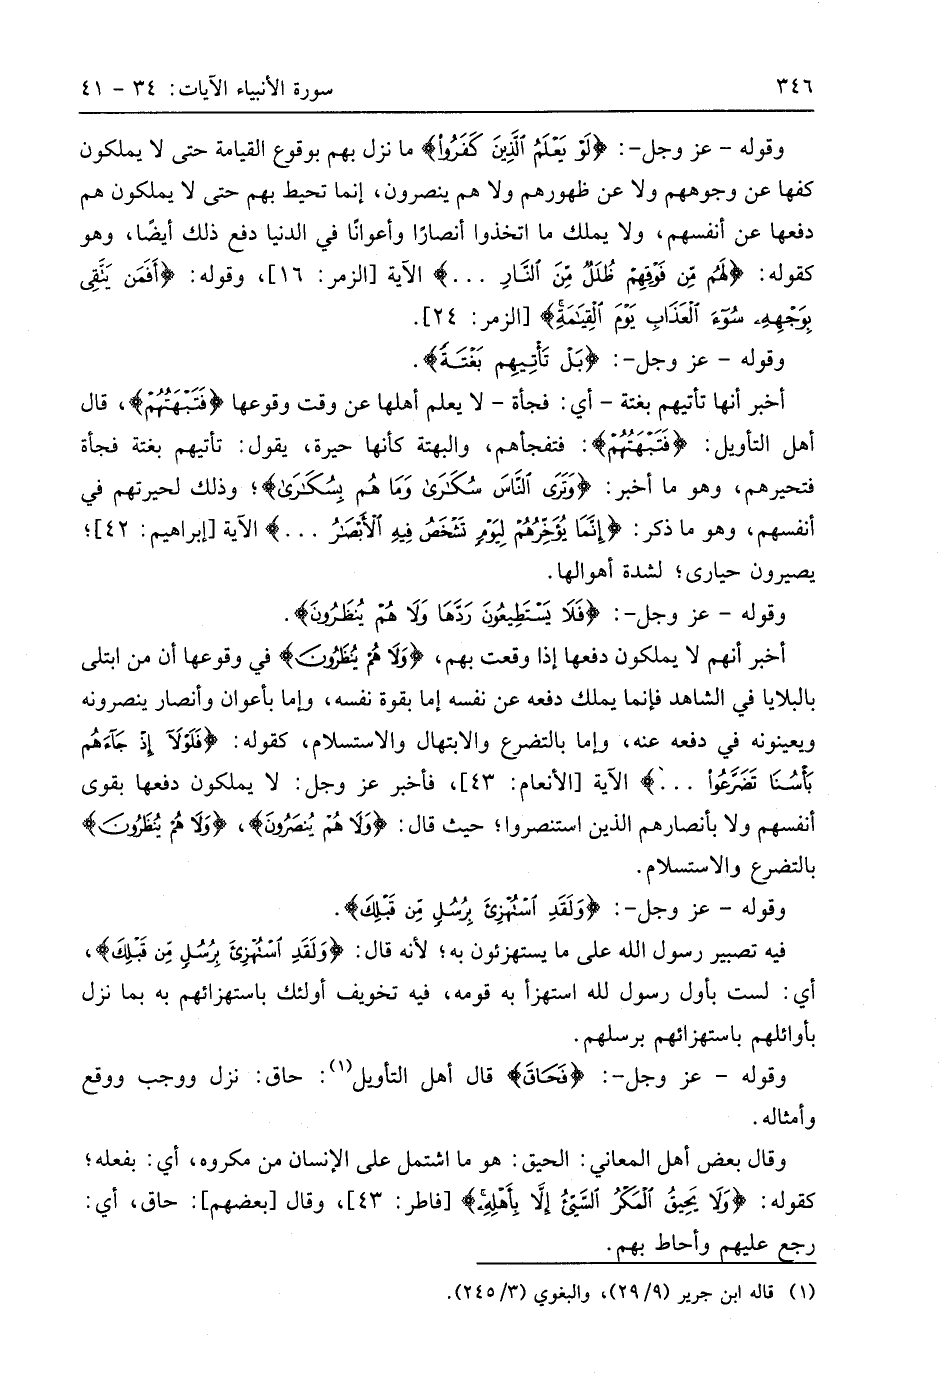 ٣٤٦ سورة الأنبياء الآيات: ٣٤ - ٤١
وقوله - عز وجل-: ﴿لَوْ يَعْلَمُ ٱلَّذِينَ كَفَرُوا۟﴾ ما نزل بهم بوقوع القيامة حتى لا يملكون
كفها عن وجوههم ولا عن ظهورهم ولا هم ينصرون، إنما تحيط بهم حتى لا يملكون هم
دفعها عن أنفسهم، ولا يملك ما اتخذوا أنصارًا وأعوانًا في الدنيا دفع ذلك أيضًا، وهو
كقوله: ﴿لَهُم مِّن فَوْقِهِمْ ظُلَلٌ مِّنَ ٱلنَّارِ ...﴾ الآية [الزمر: ١٦]، وقوله: ﴿أَفَمَن يَتَّقِى
بِوَجْهِهِۦ سُوٓءَ ٱلْعَذَابِ يَوْمَ ٱلْقِيَٰمَةِۚ﴾ [الزمر: ٢٤].
وقوله - عز وجل-: ﴿بَلْ تَأْتِيهِم بَغْتَةً﴾.
أخبر أنها تأتيهم بغتة - أي: فجأة - لا يعلم أهلها عن وقت وقوعها ﴿فَتَبْهَتُهُمْ﴾، قال
أهل التأويل: ﴿فَتَبْهَتُهُمْ﴾: فتفجأهم، والبهتة كأنها حيرة، يقول: تأتيهم بغتة فجأة
فتحيرهم، وهو ما أخبر: ﴿وَتَرَى ٱلنَّاسَ سُكَٰرَىٰ وَمَا هُم بِسُكَٰرَىٰ﴾؛ وذلك لحيرتهم في
أنفسهم، وهو ما ذكر: ﴿إِنَّمَا يُؤَخِّرُهُمْ لِيَوْمٍ تَشْخَصُ فِيهِ ٱلْأَبْصَٰرُ ...﴾ الآية [إبراهيم: ٤٢]؛
يصيرون حيارى؛ لشدة أهوالها.
وقوله - عز وجل-: ﴿فَلَا يَسْتَطِيعُونَ رَدَّهَا وَلَا هُمْ يُنظَرُونَ﴾.
أخبر أنهم لا يملكون دفعها إذا وقعت بهم، ﴿وَلَا هُمْ يُنظَرُونَ﴾ في وقوعها أن من ابتلى
بالبلايا في الشاهد فإنما يملك دفعه عن نفسه إما بقوة نفسه، وإما بأعوان وأنصار ينصرونه
ويعينونه في دفعه عنه، وإما بالتضرع والابتهال والاستسلام، كقوله: ﴿فَلَوْلَآ إِذْ جَآءَهُم
بَأْسُنَا تَضَرَّعُوا۟ ...﴾ الآية [الأنعام: ٤٣]، فأخبر عز وجل: لا يملكون دفعها بقوى
أنفسهم ولا بأنصارهم الذين استنصروا؛ حيث قال: ﴿وَلَا هُمْ يُنصَرُونَ﴾، ﴿وَلَا هُمْ يُنظَرُونَ﴾
بالتضرع والاستسلام.
وقوله - عز وجل-: ﴿وَلَقَدِ ٱسْتُهْزِئَ بِرُسُلٍ مِّن قَبْلِكَ﴾.
فيه تصبير رسول الله على ما يستهزئون به؛ لأنه قال: ﴿وَلَقَدِ ٱسْتُهْزِئَ بِرُسُلٍ مِّن قَبْلِكَ﴾،
أي: لست بأول رسول لله استهزأ به قومه، فيه تخويف أولئك باستهزائهم به بما نزل
بأوائلهم باستهزائهم برسلهم.
وقوله - عز وجل-: ﴿فَحَاقَ﴾ قال أهل التأويل(١): حاق: نزل ووجب ووقع
وأمثاله.
وقال بعض أهل المعاني: الحيق: هو ما اشتمل على الإنسان من مكروه، أي: بفعله؛
كقوله: ﴿وَلَا يَحِيقُ ٱلْمَكْرُ ٱلسَّيِّئُ إِلَّا بِأَهْلِهِۦۚ﴾ [فاطر: ٤٣]، وقال [بعضهم]: حاق، أي:
رجع عليهم وأحاط بهم.
(١) قاله ابن جرير (٢٩/٩)، والبغوي (٢٤٥/٣).